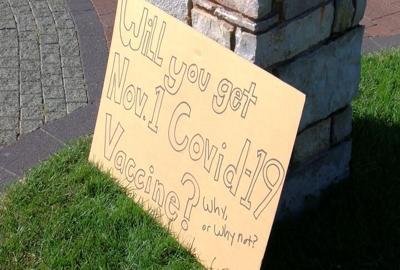 Will you get
Nov. 1 Covid-19
Vaccine? Why,
or Why not?